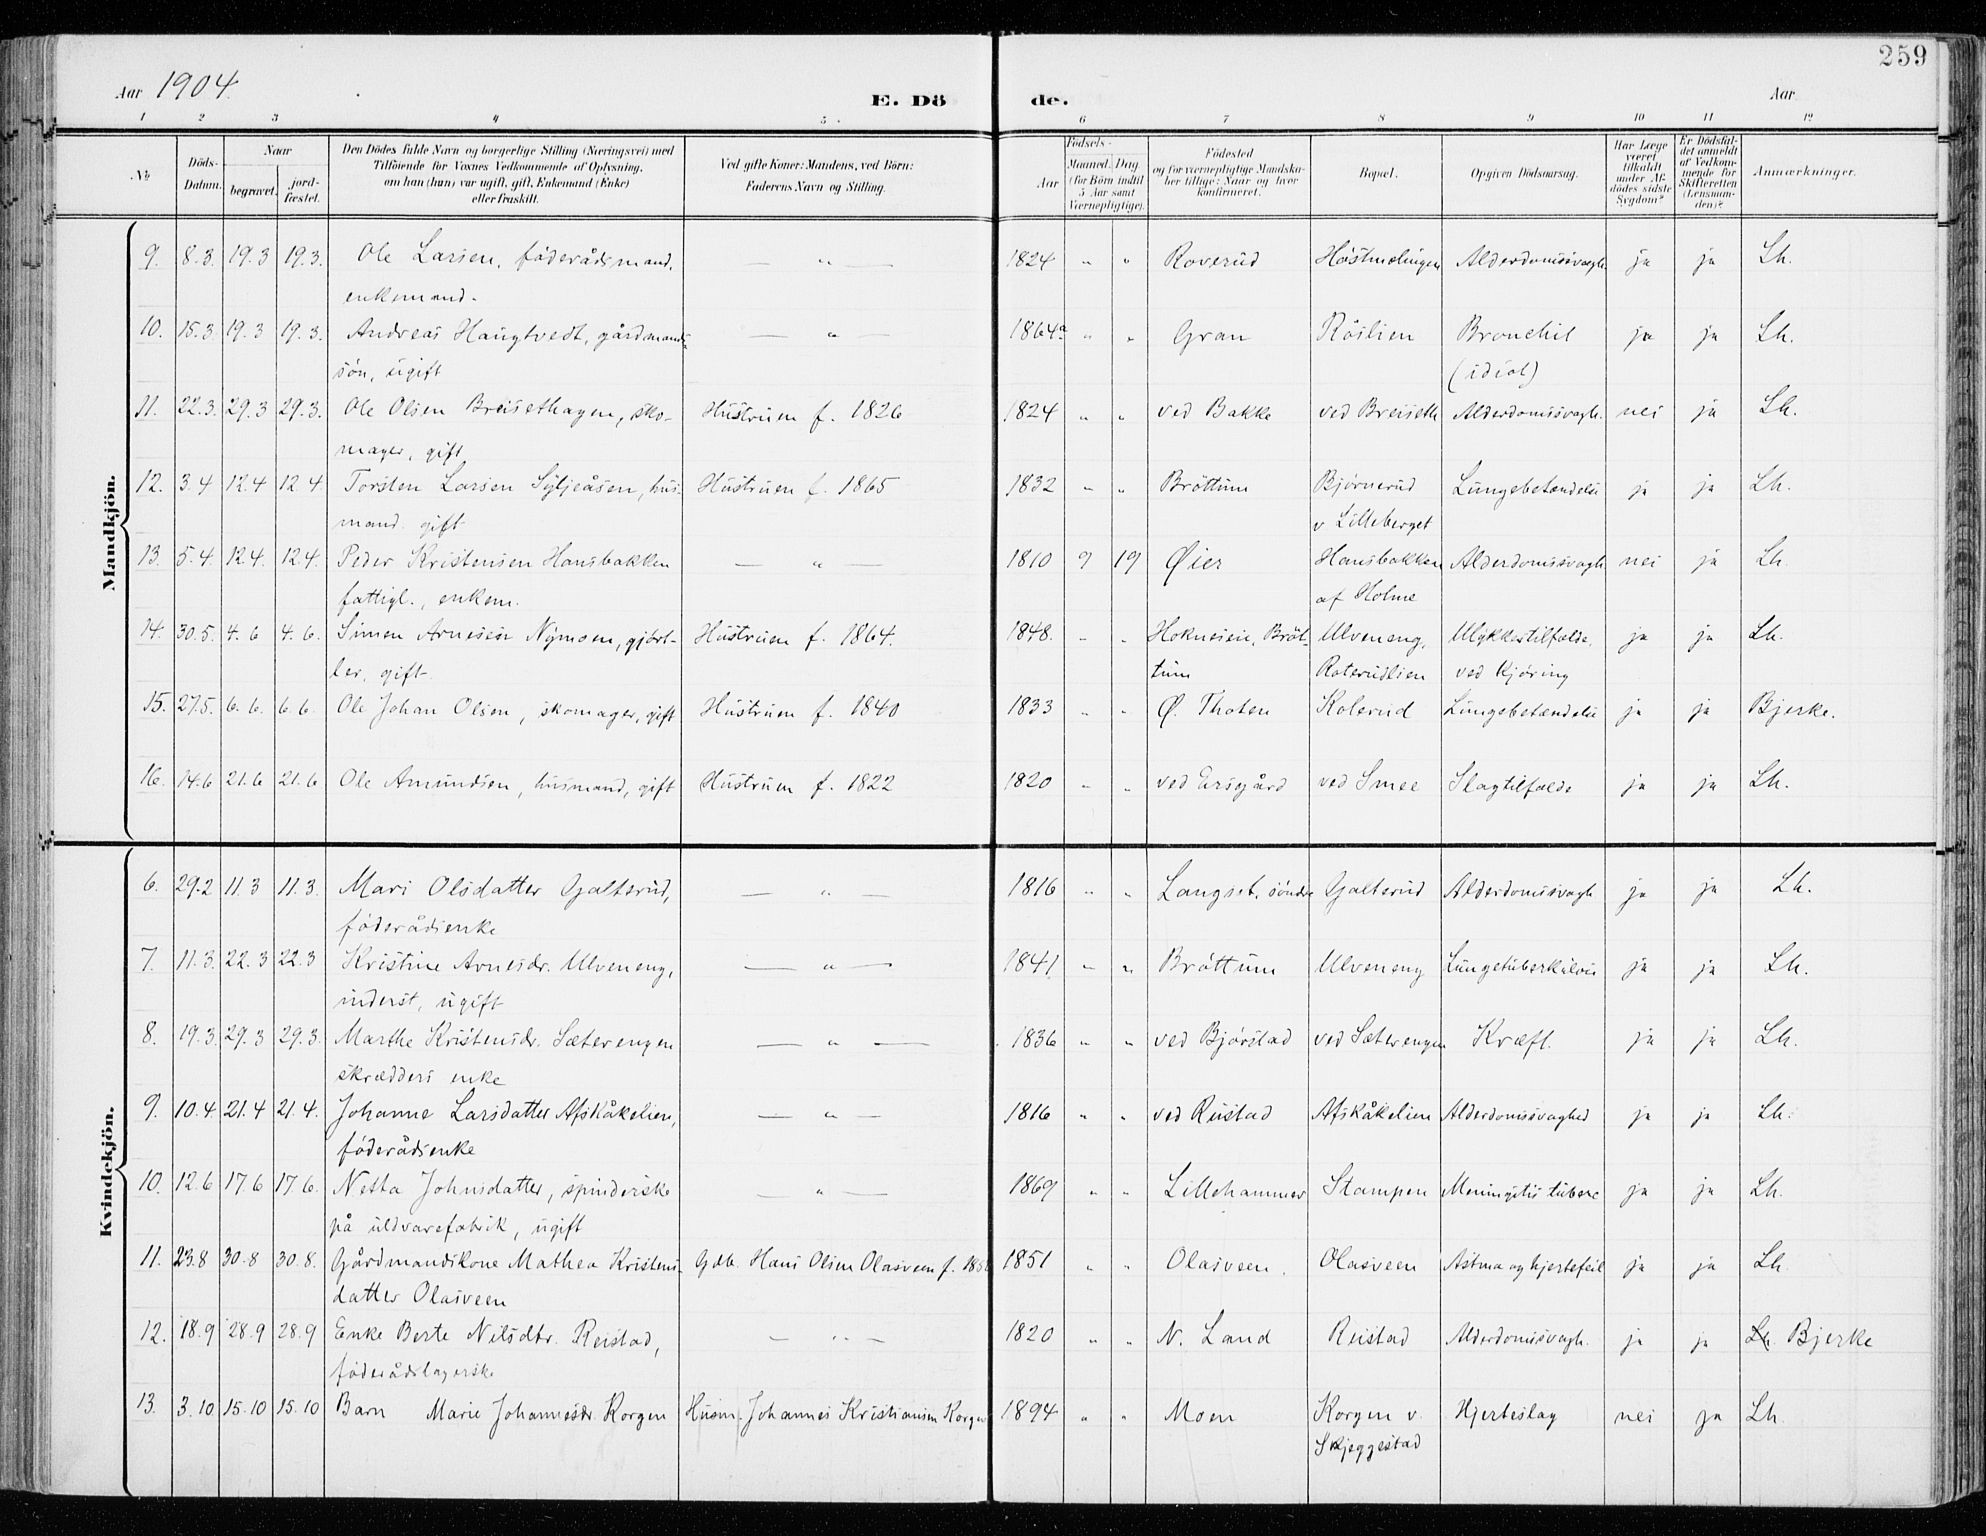 259
Aar 1904.
E. Dö de.
Aar
1 2 3 4 5. 6 7 8 9 10 11 12
№ Döds-Datum. Naar begravet. jord-fæstet. Den Dödes fulde Navn og borgerlige Stilling (Næringsvei) med Tilföiende for Voxnes Vedkommende af Oplysning, om han (hun) var ugift, gift, Enkemand (Enke) eller fraskilt. Ved gifte Koner: Mandens, ved Börn: Faderens Navn og Stilling. Födsels- Aar Maaned. Dag (for Börn indtil 5 Aar samt Værnepligtige). Födested og for værnepligtige Mandska-ber tillige: Naar og hvor konfirmeret. Bopæl. Opgiven Dödsaarsag. Har Læge været tilkaldt under Af-dödes sidste Sygdom? Er Dödsfal-det anmeldt af Vedkom-mende for Skifteretten (Lensman-den)? Anmærkninger.
Mandkjön.
9. 8.3. 19.3 19.3. Ole Larsen, föderådsmand, — " — 1824 " " Roverud Höstmælingen Alderdomssvagh. ja ja Lh.
enkemand.
10. 15.3. 19.3 19.3. Andreas Haugtvedt, gårdmands- — " — 1864 " " Gran Röslien Bronchit ja ja Lh.
sön, ugift (idiot)
11. 22.3. 29.3 29.3. Ole Olsen Breisethagen, sko- Hustruen f. 1826 1824 " " ved Bakke ved Breiseth Alderdomssvagh. nei ja Lh.
mager, gift
12. 3.4 12.4 12.4 Torsten Larsen Syljeåsen, hus- Hustruen f. 1865 1832 " " Bröttum Bjørnerud Lungebetændelse ja ja Lh.
mand. gift v Lilleberget
13. 5.4 12.4. 12.4. Peder Kristensen Hansbakken — " — 1810 9 19 Øier Hansbakken Alderdomssvagh. nei ja Lh.
fattigl., enkem. af Holme
14. 30.5. 4.6 4.6. Simen Arnesen Nymoen, gjört- Hustruen f. 1864. 1848. " " Hokneseie, Bröt- Ulveneng, Ulykkestilfælde, ja ja Lh.
ler, gift. tum Roterudlien ved kjöring
15. 27.5. 6.6. 6.6. Ole Johan Olsen, skomager, gift Hustruen f. 1840 1833 " " Ø. Thoten Kolerud Lungebetændelse ja ja Bjerke.
16. 14.6 21.6 21.6 Ole Amundsen, husmand, gift Hustruen f. 1822 1820 " " ved Ersgård ved Smee Slagtilfælde ja ja Lh.
Kvindekjön.
6. 29.2 11.3 11.3. Mari Olsdatter Galterud, — " — 1816 " " Langset, söndre Galterud Alderdomssvagh ja ja Lh.
föderådsenke
7. 11.3. 22.3 22.3 Kristine Arnesdr. Ulveneng, — " — 1841 " " Bröttum Ulveneng Lungetuberkulose ja ja Lh.
inderst, ugift
8. 19.3. 29.3 29.3. Marthe Kristensdr. Sæterengen — " — 1836 " " ved Bjørstad ved Sæterengen Kræft. ja ja Lh.
skrædders enke
9. 10.4. 21.4 21.4. Johanne Larsdatter Afskåkelien, — " — 1816 " " ved Rustad Afskåkelien Alderdomssvaghed ja ja Lh.
föderådsenke
10. 12.6 17.6 17.6. Netta Johnsdatter, spinderske — " — 1869 " " Lillehammer Stampen Meningitis tuberc ja ja Lh.
på uldvarefabrik, ugift
11. 23.8 30.8 30.8. Gårdmandskone Mathea Kristens- Gdb. Hans Olsen Olasveen f. 1851 " " Olasveen. Olasveen Astma og hjertefeil ja ja Lh.
datter Olasveen
12. 18.9 28.9 28.9 Enke Berte Nilsdtr. Reistad, — " — 1820 " " N. Land Reistad Alderdomssvagh. ja ja Lh. Bjerke
föderådstagerske
13. 3.10 15.10 15.10 Barn Marie Johannesdr. Korgen Husm. Johannes Kristiansen Korgen 1894 " " Moen Korgen v. Hjerteslag nei ja Lh.
Skjeggestad